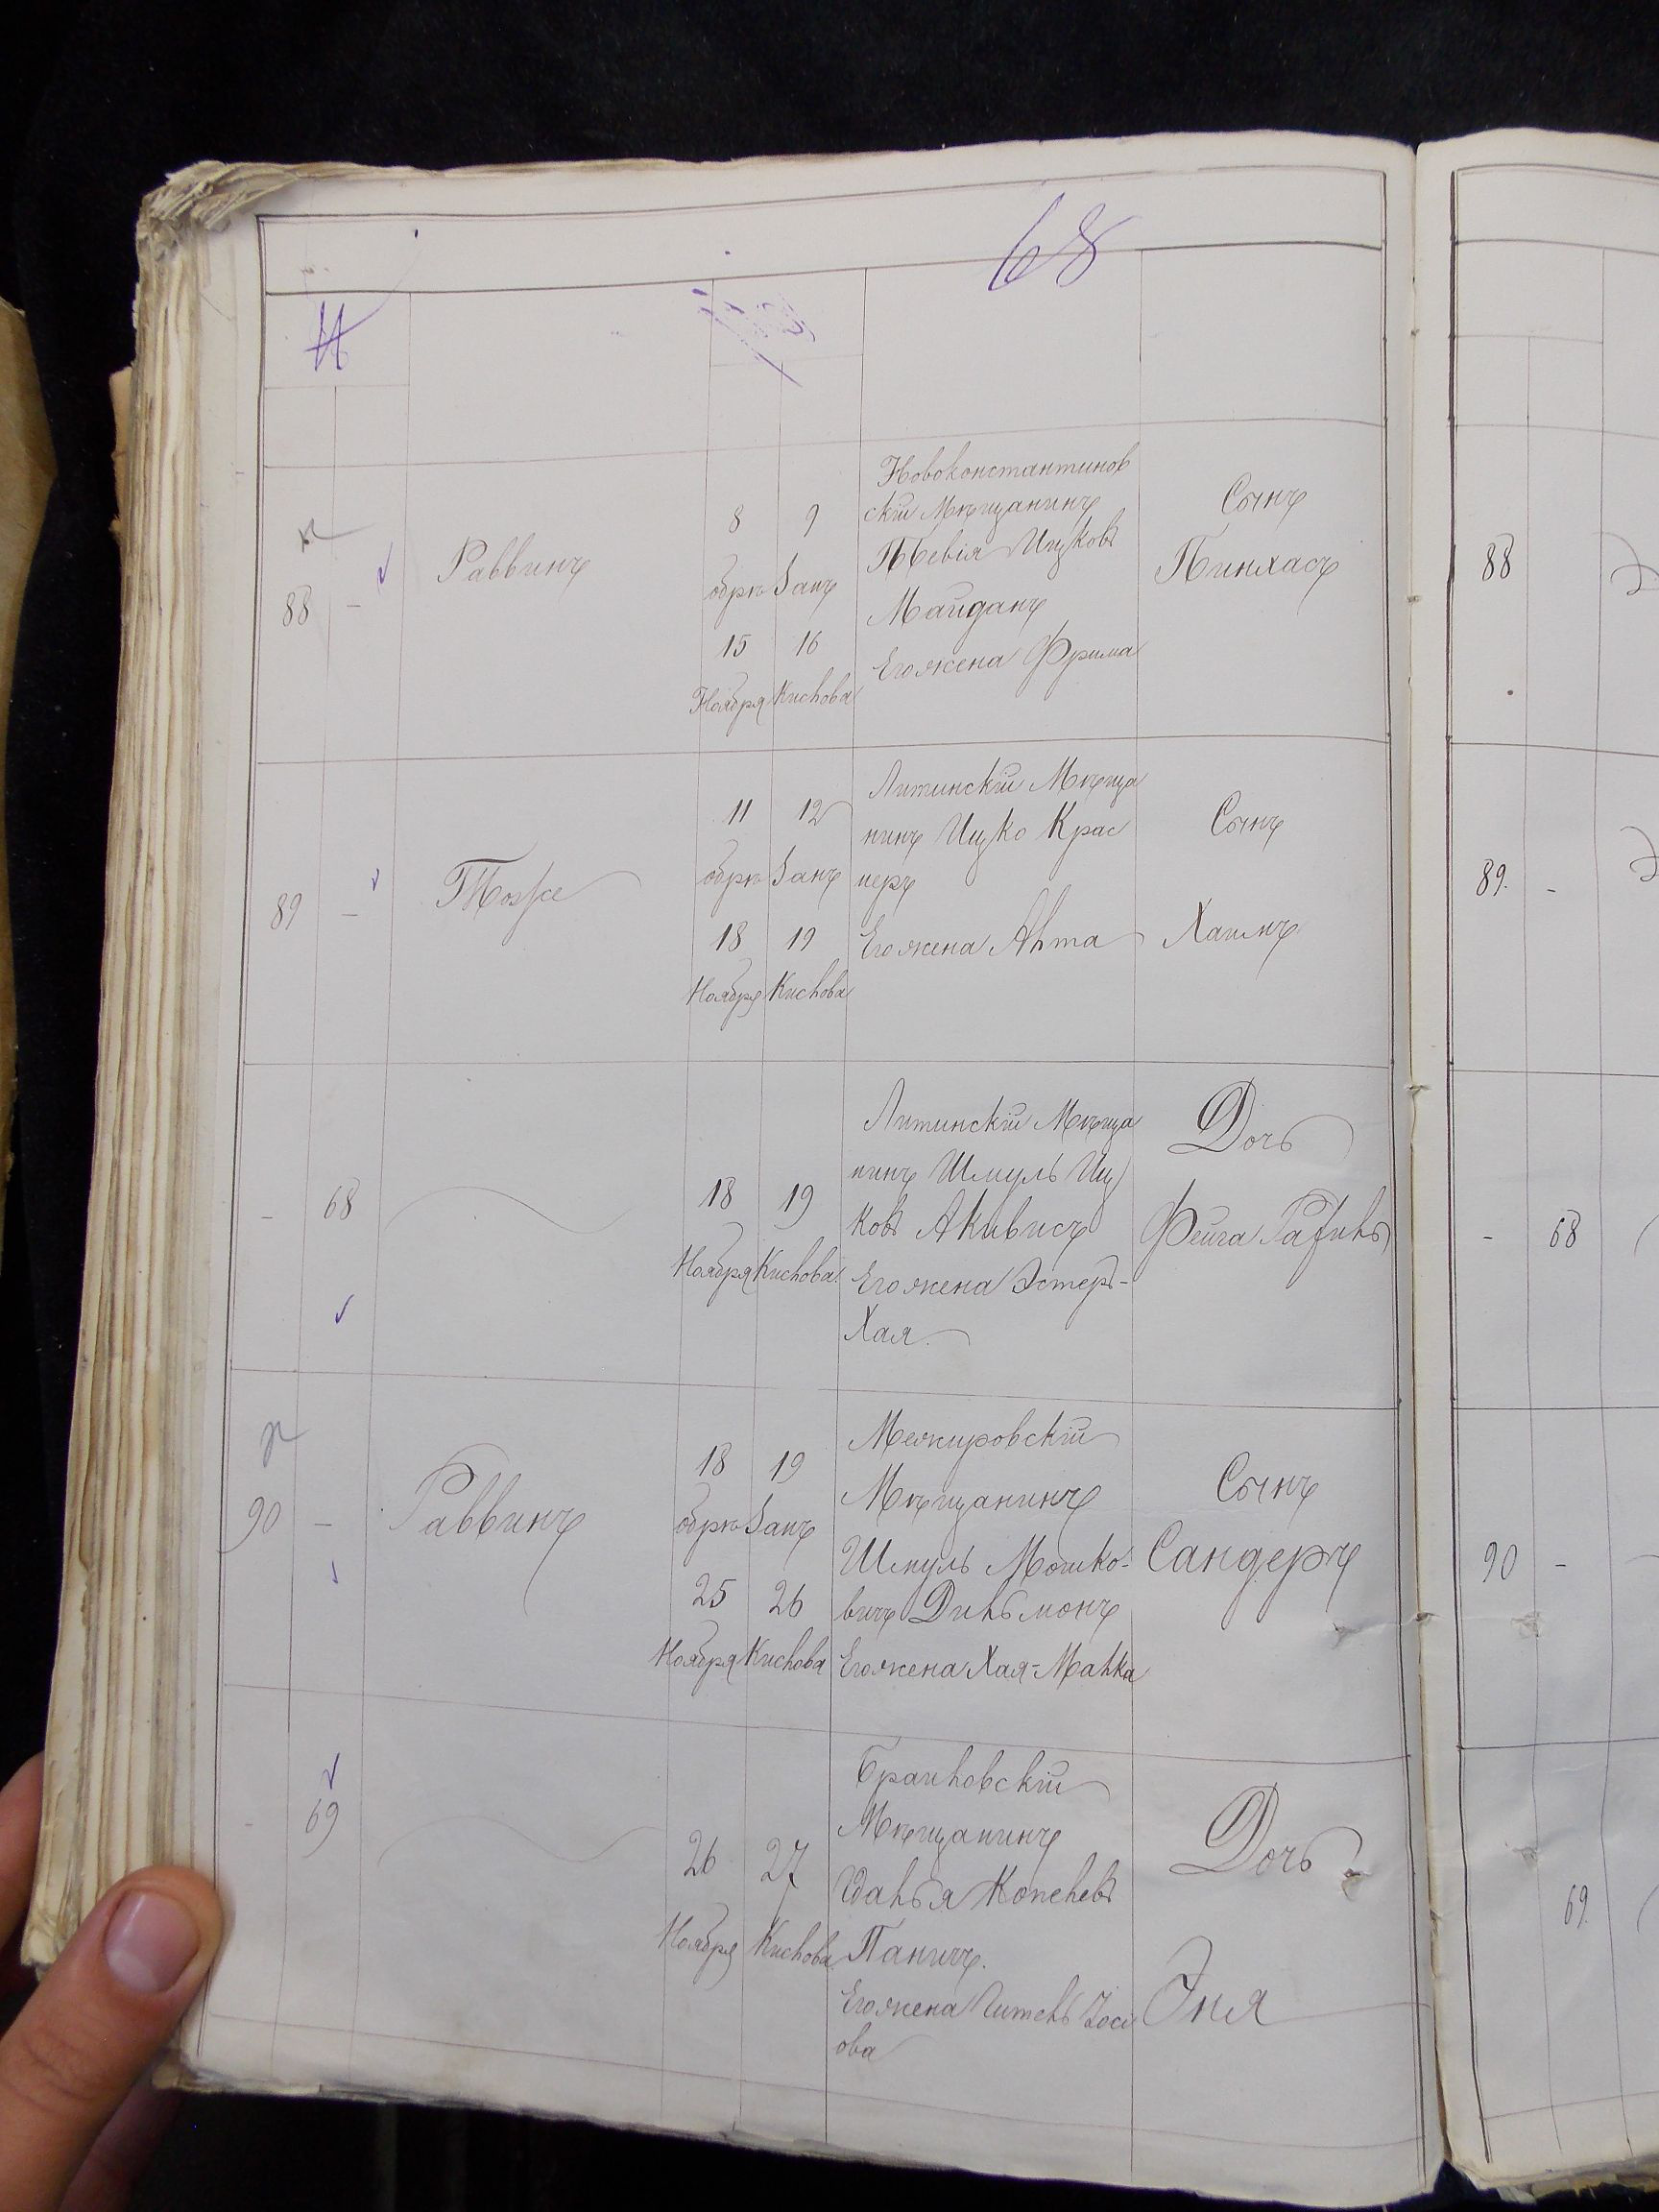 68
88
-
Раввинъ
8 9
обрѣзанъ
15 16
Ноября Кислова
Новоконстантинов
скій Мѣщанинъ
Тевія Ицковъ
Майданъ
Его жена Фрима
Сынъ
Пинхасъ
89
-
Тоже
11 12
обрѣзанъ
18 19
Ноября Кислова
Литинскій Мѣща
нинъ Ицко Крас
неръ
Его жена Анта
Сынъ
Хаимъ
-
68
18 19
Ноября Кислова
Литинскій Мѣща
нинъ Шмуль Иц
ковъ Акивисъ
Его жена Эстеръ-
Хая.
Дочь
Фейга
90
-
Раввинъ
18 19
обрѣзанъ
25 26
Ноября Кислова
Межировскій
Мѣщанинъ
Шмуль Мошко-
вичъ Дильмонъ
Его жена Хая-Малка
Сынъ
Сандеръ
-
69
26 27
Ноября Кислова
Браиловскій
Мѣщанинъ
Паничъ.
Его жена
ова
Дочь
Эня
88
89.
-
-
68
90
-
69